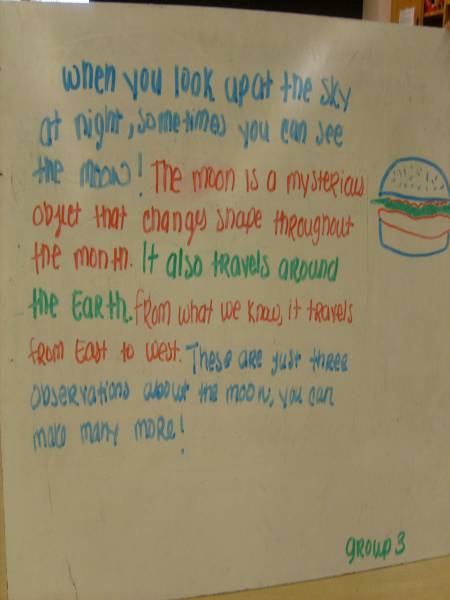 When you look up at the sky
at night, sometimes you can see
the moon! The moon is a mysterious
object that changes shape throughout
the month. It also travels around
the Earth. From what we know, it travels
from East to West. These are just three
observations about the moon, you can
make many more!
group 3